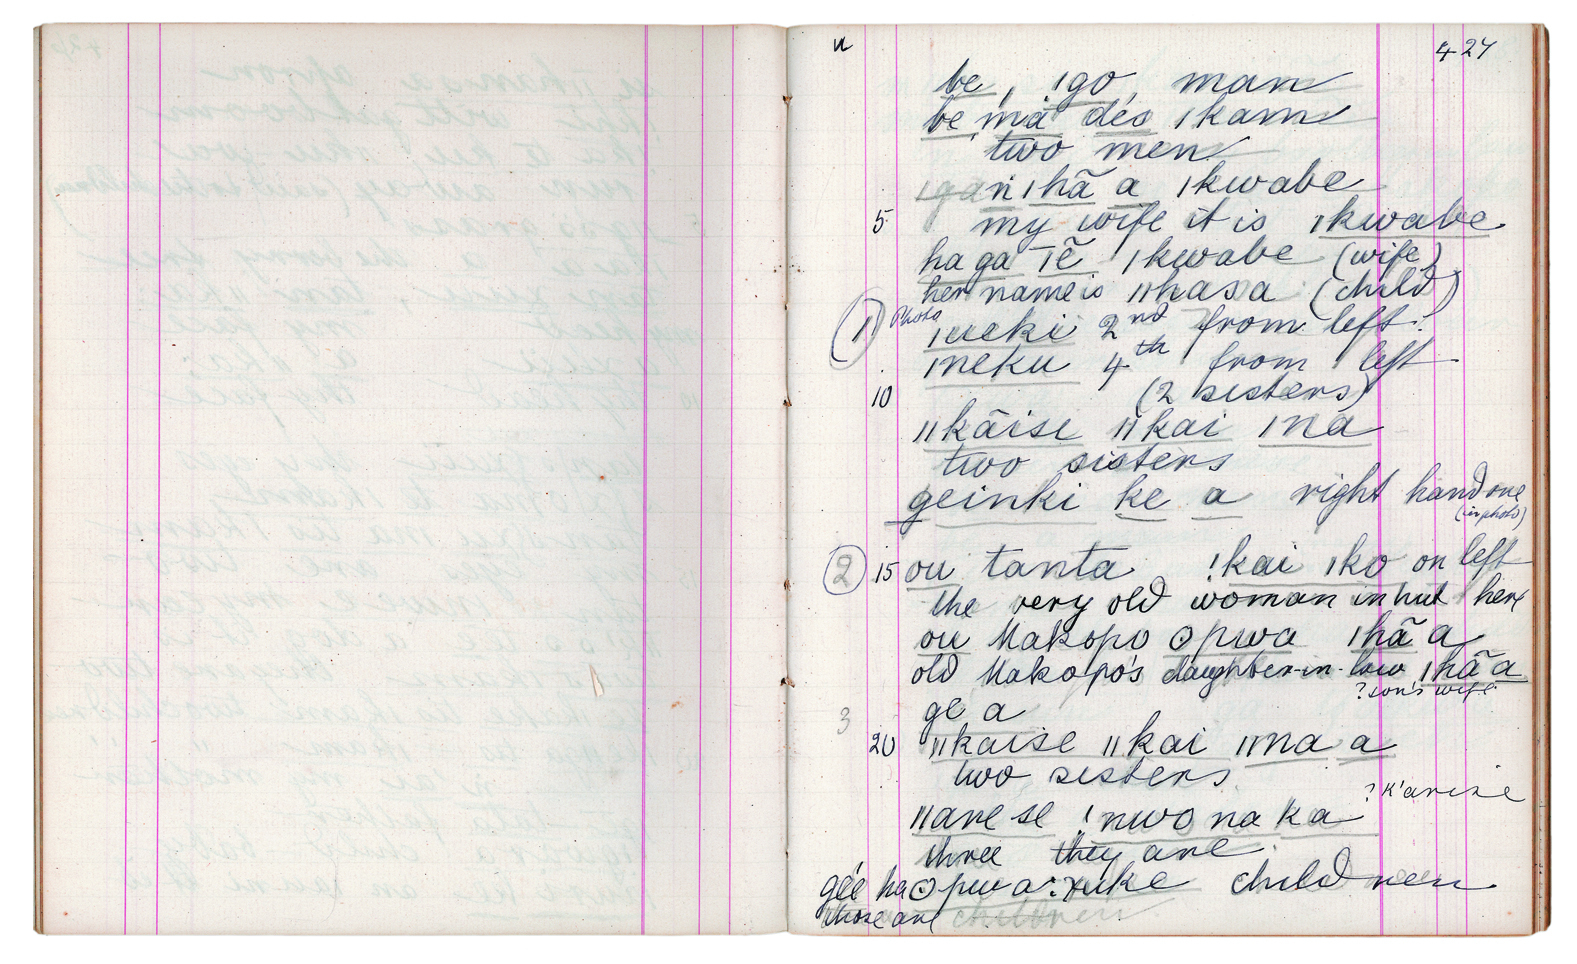 u 427
be, ǃgo, man
be má dés ǀkam
two men
ǀgáń ǀhã a ǀkwabe
5 my wife it is ǀkwabe
ha ga Tẽ ǀkwabe (wife)
her name is ǁhasa (child)
1) Photo ǀueki 2nd from left.
ǀneku 4th from left
10 (2 sisters)
ǁkāise ǁkai ǀna
two sisters
geinki ke a right hand one
(in photo)
2 15 ou tanta ǃkai ǀko on left
the very old woman in hut here
ou Makopo ʘpwa ǀhã a
old Makopo's daughter-in-law ǀhã a
? son's wife
3 ge a
20 ǁkaise ǁkai ǀma a
two sisters
? k'arise
ǁarese ǃnwo na ka
three they are.
geé ha ʘpwa:xuke children
those are children